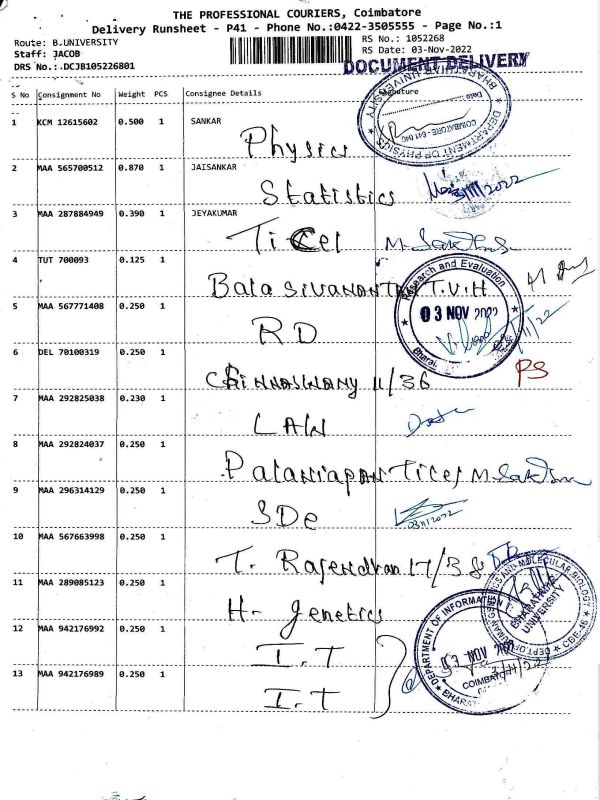 THE PROFESSIONAL COURIERS, Coimbatore
Delivery Runsheet - P41 - Phone No.:0422-3505555 - Page No.:1
Route: B.UNIVERSITY
RS No.: 1052268
Staff: JACOB
RS Date: 03-Nov-2022
DRS No.:.DCJB105226801
DOCUMENT DELIVERY
S No Consignment No Weight PCS Consignee Details Signature
1 KCM 12615602 0.500 1 SANKAR
Physics
DEPARTMENT OF PHYSICS
COIMBATORE - 641 046
Date :
2 MAA 565700512 0.870 1 JAISANKAR
Statistics
3/11/2022
3 MAA 287884949 0.390 1 JEYAKUMAR
Ticel
4 TUT 700093 0.125 1
Balasivananthan T.V.H
Research and Evaluation
03 NOV 2022
5 MAA 567771408 0.250 1
RD
6 DEL 70100319 0.250 1
Chinnaswany 11/36
PS
7 MAA 292825038 0.230 1
LAW
8 MAA 292824037 0.250 1
Palaniapan Ticel
9 MAA 296314129 0.250 1
SDe
03/11/2022
10 MAA 567663998 0.250 1
T. Rajendran 17/38
11 MAA 289085123 0.250 1
H- genetics
BHARATHIAR UNIVERSITY
12 MAA 942176992 0.250 1
I.T
DEPARTMENT OF INFORMATION
03 NOV 2022
13 MAA 942176989 0.250 1
I.T